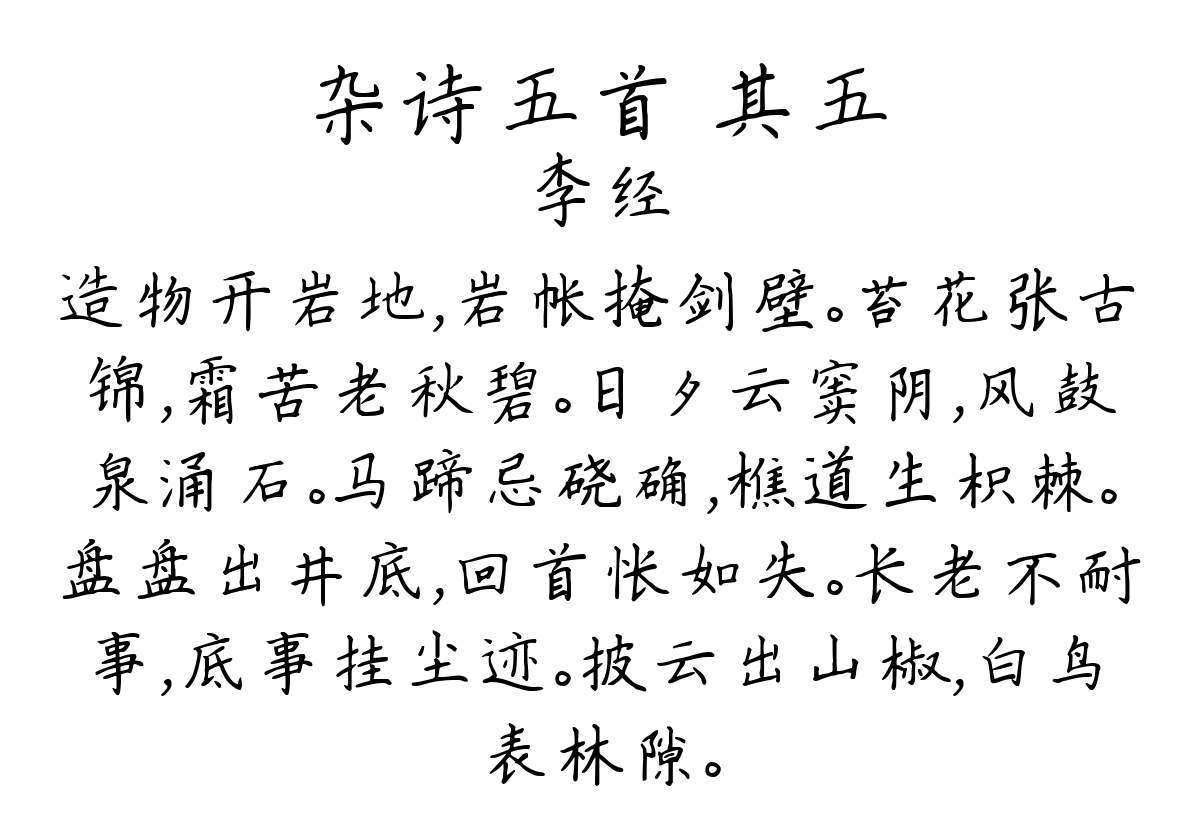 杂诗五首 其五
李经
造物开岩地,岩帐掩剑壁。苔花张古
锦,霜苦老秋碧。日夕云窦阴,风鼓
泉涌石。马蹄忌硗确,樵道生枳棘。
盘盘出井底,回首怅如失。长老不耐
事,底事挂尘迹。披云出山椒,白鸟
表林隙。